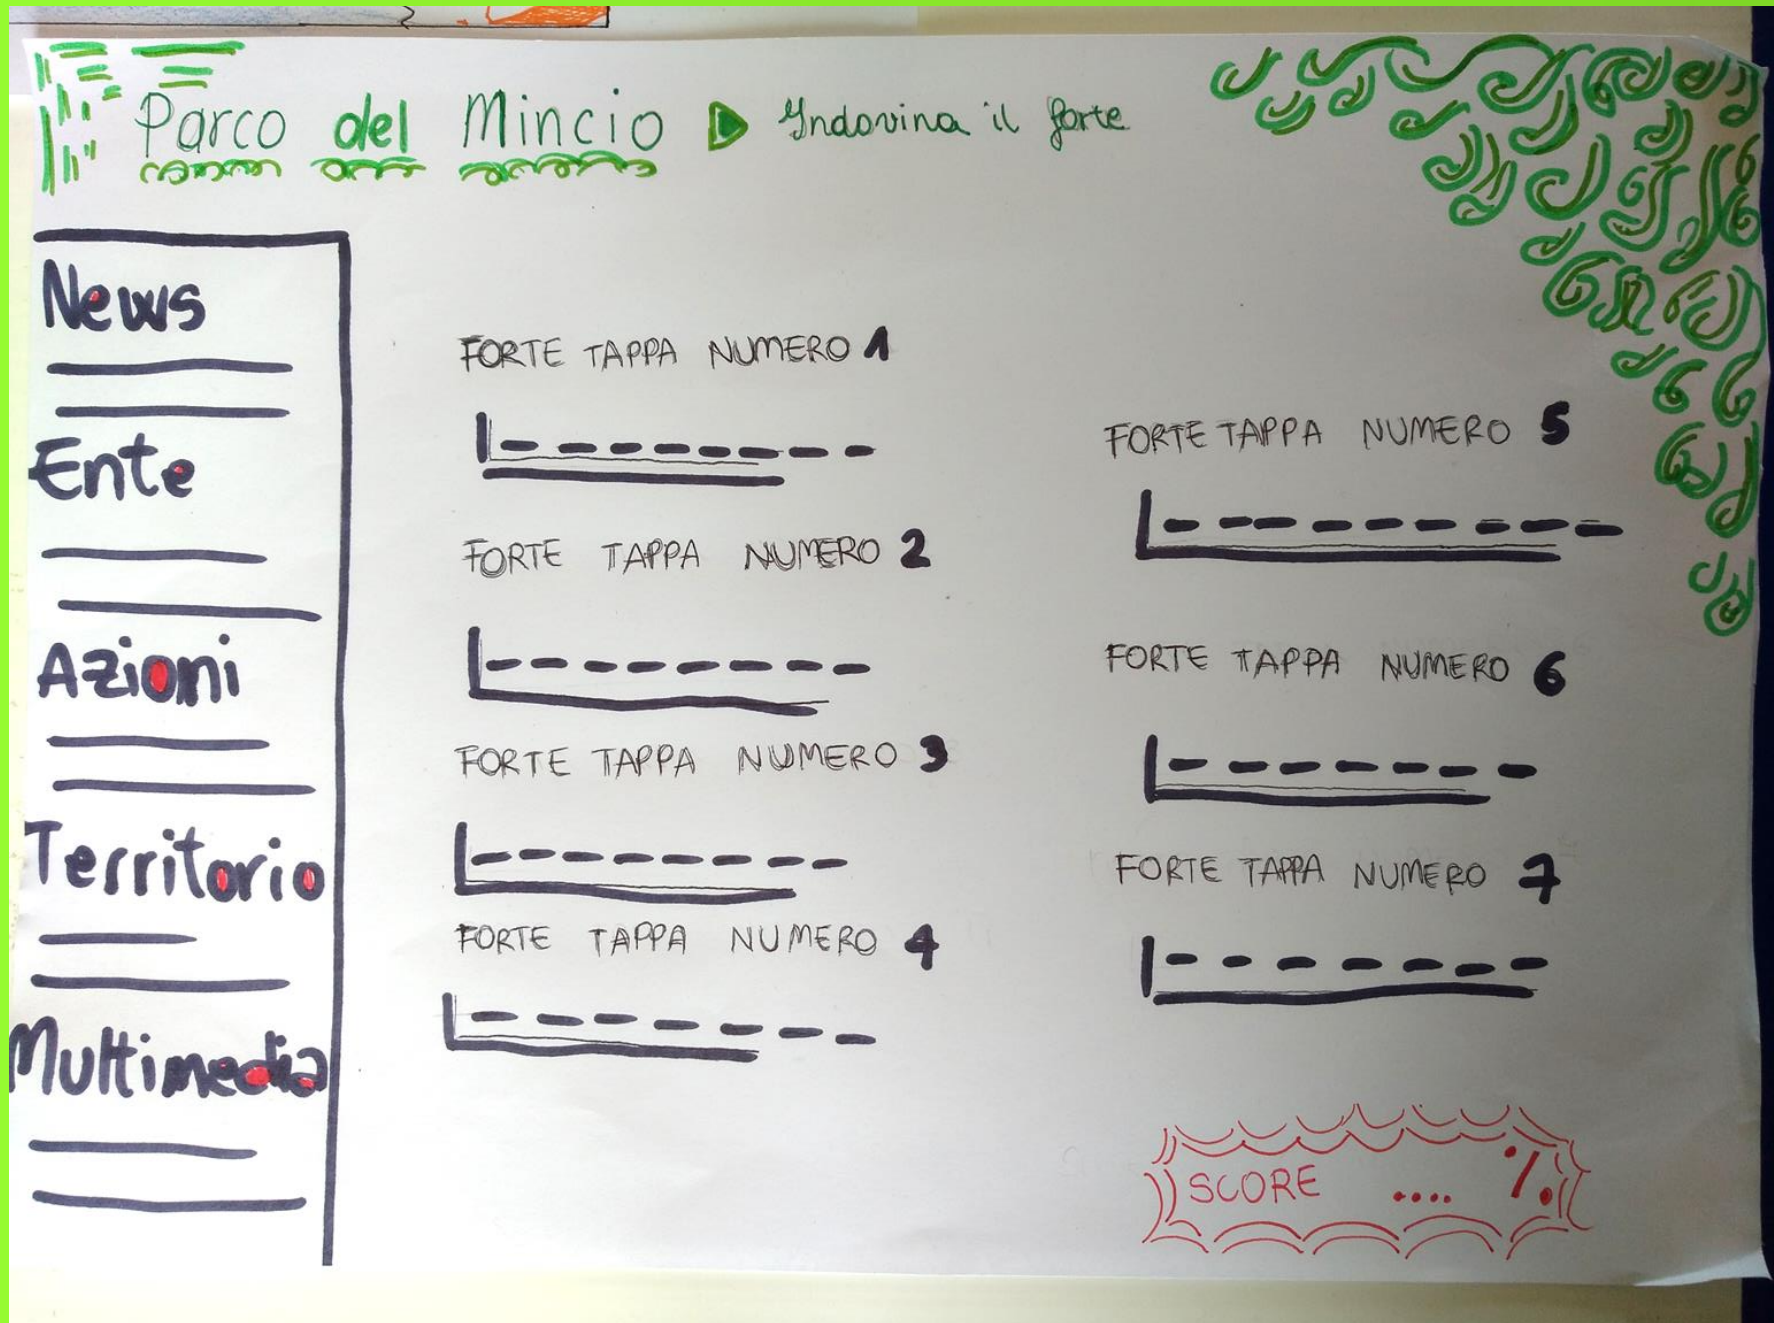 Parco del Mincio Indovina il forte
News
Ente
Azioni
Territorio
Multimedia
FORTE TAPPA NUMERO 1
FORTE TAPPA NUMERO 2
FORTE TAPPA NUMERO 3
FORTE TAPPA NUMERO 4
FORTE TAPPA NUMERO 5
FORTE TAPPA NUMERO 6
FORTE TAPPA NUMERO 7
SCORE .... %